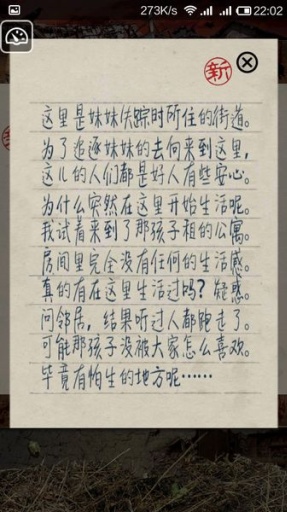 273K/s 22:02
新
这里是妹妹失踪时所住的街道。
为了追逐妹妹的去向来到这里,
这儿的人们都是好人有些安心。
为什么突然在这里开始生活呢。
我试着来到了那孩子租的公寓。
房间里完全没有任何的生活感。
真的有在这里生活过吗?疑惑。
问邻居,结果听过人都跑走了。
可能那孩子没被大家怎么喜欢。
毕竟有怕生的地方呢……